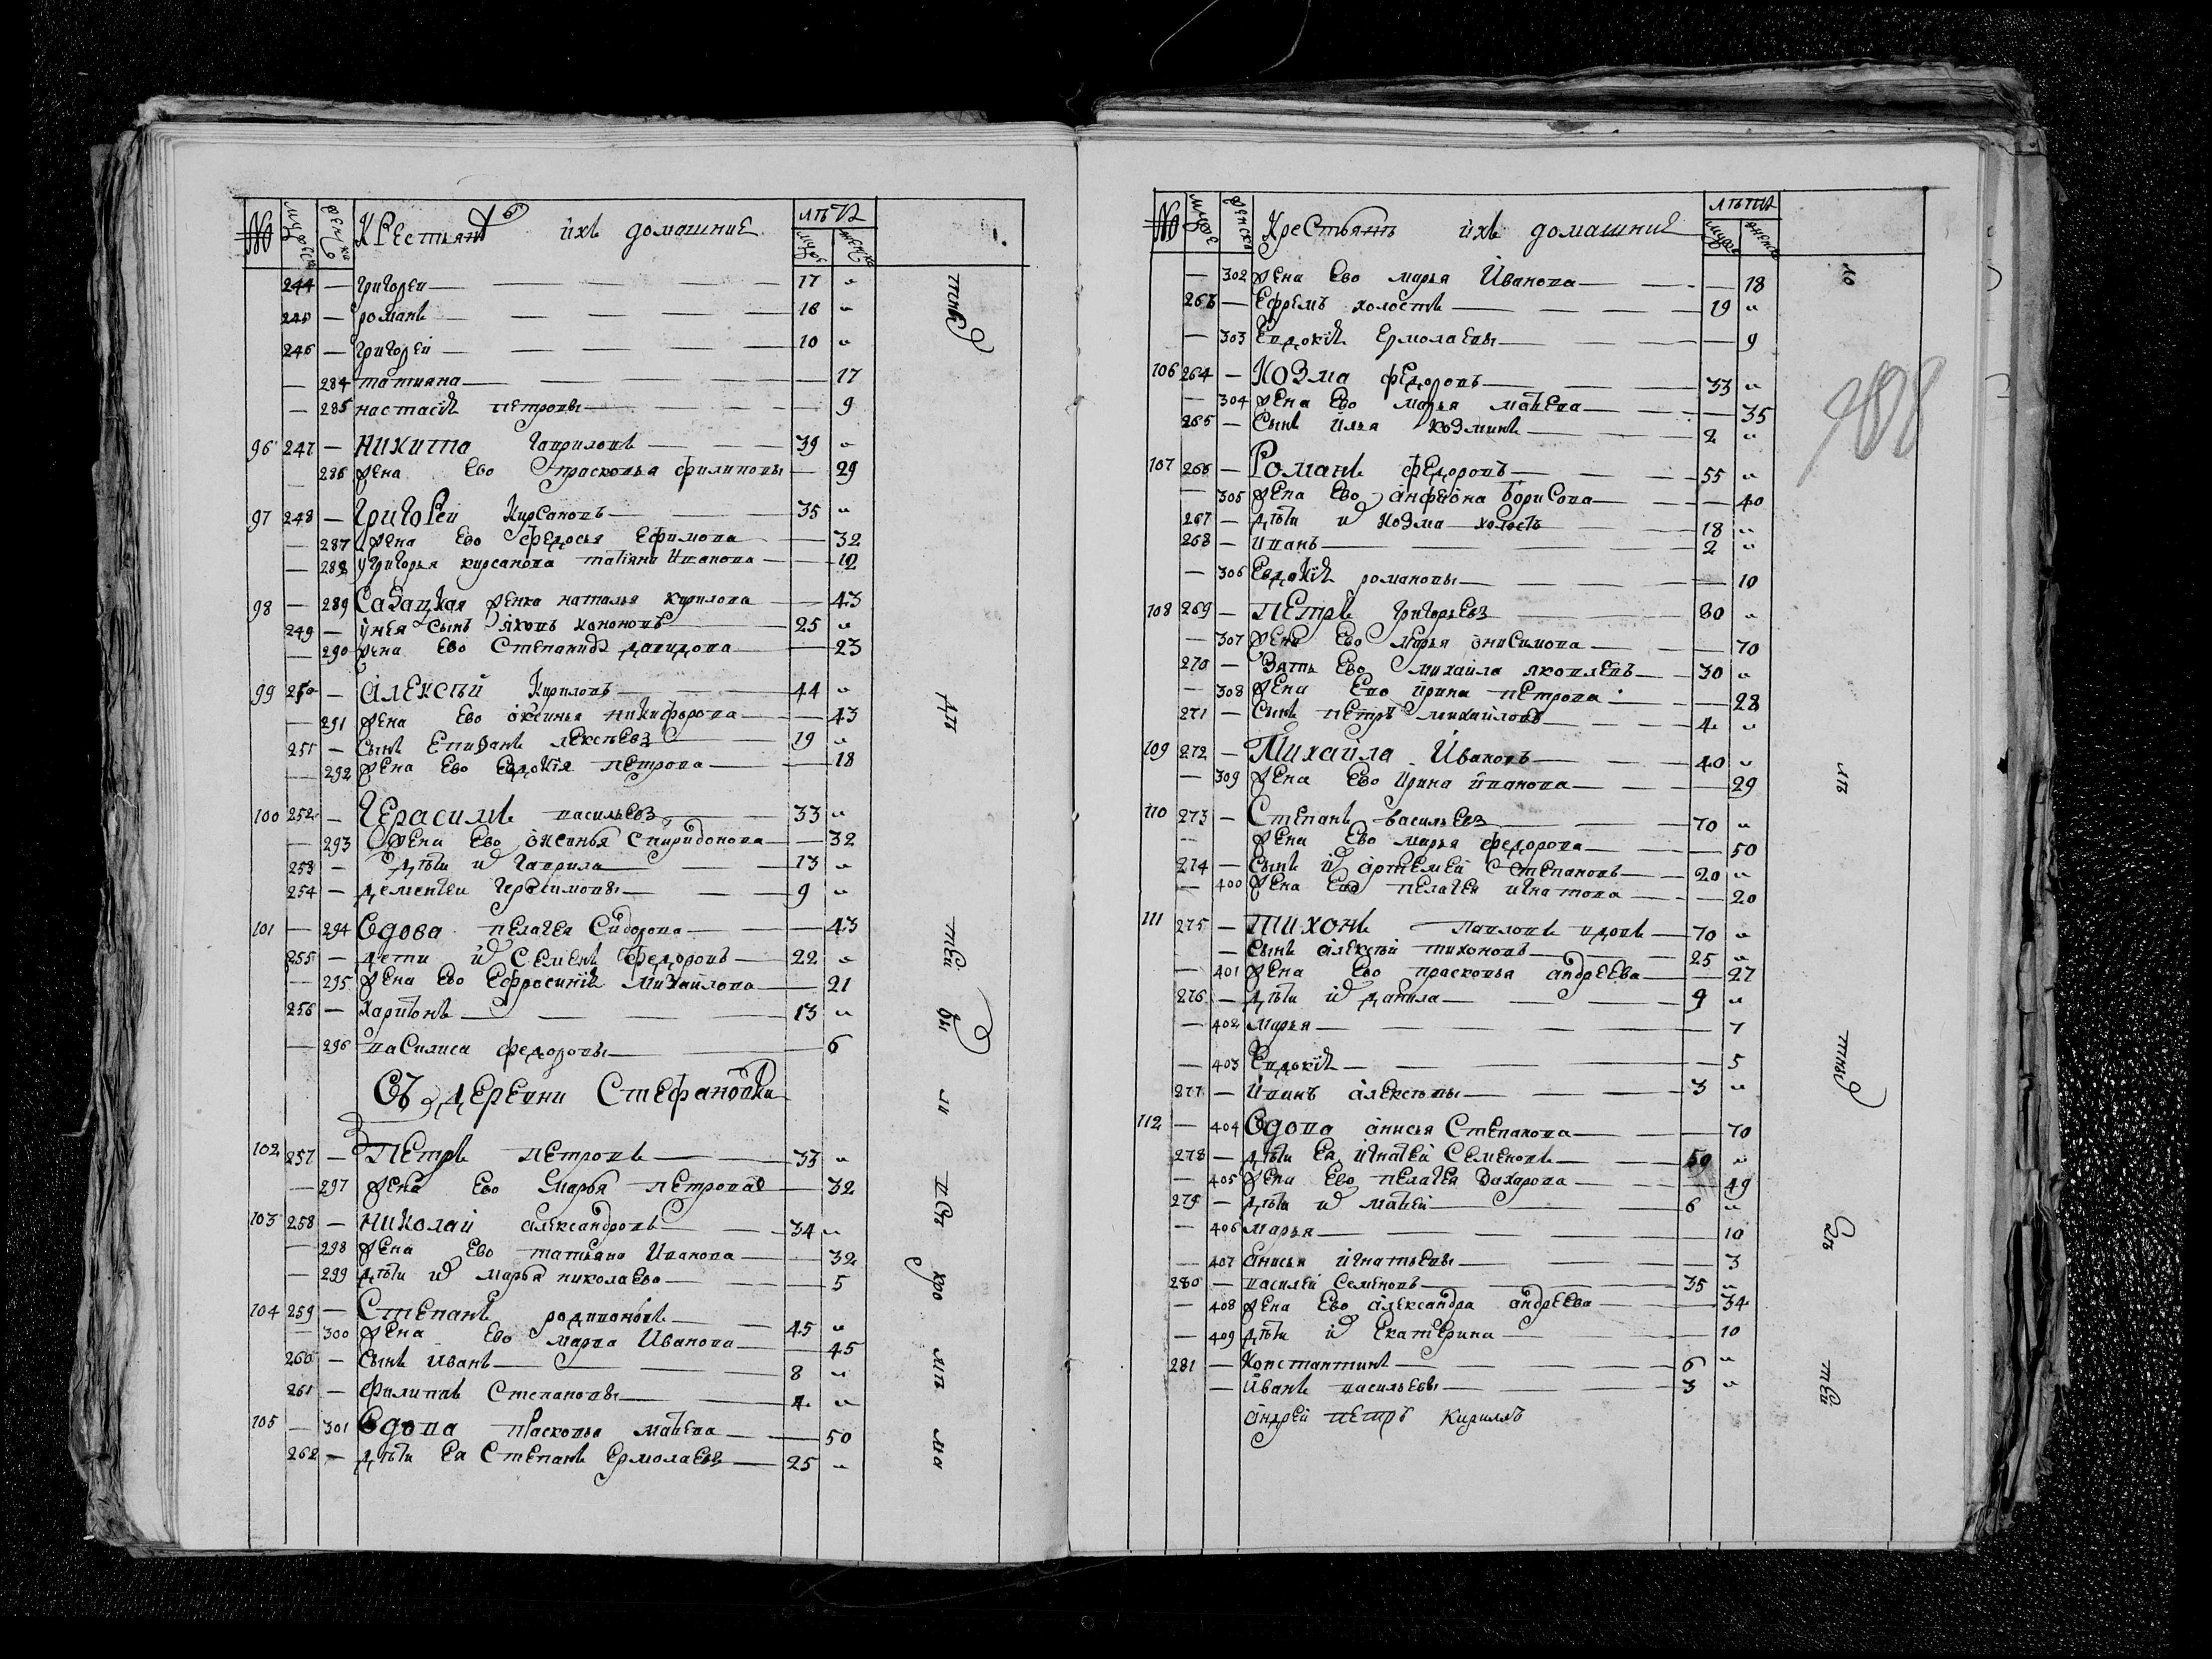 № мужеск женско Крестьянъ ихъ домашние лѣта мужс женско
244 — григореи — 17 "
245 — романъ — 16 "
246 — григореи — 10 "
— 284 татиана — 17
— 285 настасія петровы — 9
96 247 — Никита гавриловъ — 39 "
— 286 жена Ево праскопья филиповы — 29
97 248 — Григореи Кирсановъ — 35 "
— 287 жена Ево федосья Ефимова — 32
— 288 у григорья кирсанова татіяна Иванова — 12
98 — 289 Салацкая женка наталья кирилова — 43
249 — у нея сынъ яковъ кононовъ — 25 "
— 290 жена Ево Степанида давидова — 23
99 250 — Алексѣй Кириловъ — 44 "
— 291 жена Ево оксинья никифорова — 43
251 — Сынъ Епифанъ лексѣевъ — 19 "
— 292 жена Ево Евдокія петрова — 18
100 252 — Герасимъ васильевъ — 33 "
— 293 жена Ево оксинья Спиридонова — 32
253 — дѣти и гаврила — 13 "
254 — дементеи герасимовы — 9 "
101 — 294 Вдова пелагея Сидорова — 43
255 — дети и Семенъ федоровъ — 22 "
— 295 жена Ево Ефросинія Михаилова — 21
256 — Харитонъ — 13 "
— 296 василиса федоровы — 6
Въ деревни Стефановки
102 257 — Петръ петровъ — 33 "
— 297 жена Ево Марья петрова — 32
103 258 — Николай александровъ — 34 "
— 298 жена Ево татьяна Иванова — 32
— 299 дѣти и марья николаева — 5
104 259 — Степанъ родивоновъ — 45 "
— 300 жена Ево марва Иванова — 45
260 — Сынъ иванъ — 8 "
261 — филипъ Степановы — 4 "
105 — 301 Вдова праскопья матвева — 50
262 — дѣти Ея Степанъ Ермолаевъ — 25 "
№ мужс женско Крестьянъ ихъ домашние лѣта мужс женско
— 302 жена Ево марья Иванова — 18
263 — Ефремъ холостъ — 19 "
— 303 Евдокія Ермолаевы — 9
106 264 — Козма федоровъ — 33 "
— 304 жена Ево марья матвева — 35
265 — Сынъ илья козминъ — 2 "
107 266 — Романъ федоровъ — 55 "
— 305 жена Ево анфиона борисова — 40
267 — дѣти и козма холостъ — 18 "
268 — иванъ — 2 "
— 306 Евдокія романовы — 10
108 269 — Петръ григорьевъ — 80 "
— 307 жена Ево марья онисимова — 70
270 — Зять Ево михаила яковлевъ — 30 "
— 308 жена Ево ирина петрова — 28
271 — Сынъ петръ михайловъ — 4 "
109 272 — Михаила Ивановъ — 40 "
— 309 жена Ево ирина иванова — 29
110 273 — Степанъ васильевъ — 70 "
— жена Ево марья федорова — 50
274 — сынъ и артемеи Степановъ — 20 "
— 400 жена Ево пелагея игнатова — 20
111 275 — Тихонъ павловъ вдовъ — 70 "
— сынъ алексѣй тихоновъ — 25 "
— 401 жена Ево праскопья андреева — 27
276 — дѣти и данила — 9 "
— 402 марья — 7
— 403 Евдокія — 5
277 — Иванъ алексѣевы — 3 "
112 — 404 Вдова анисья Степанова — 70
278 — дѣти Ея игнатеи Семеновъ — 50 "
— 405 жена Ево пелагея Захарова — 49
279 — дѣти и матвеи — 6 "
— 406 марья — 10
— 407 анисья игнатьевы — 3
280 — василеи Семеновъ — 35 "
— 408 жена Ево александра андреева — 34
— 409 дѣти и Екатерина — 10
281 — Константинъ — 6 "
— Иванъ васильевы — 3 "
андреи петръ кирилъ